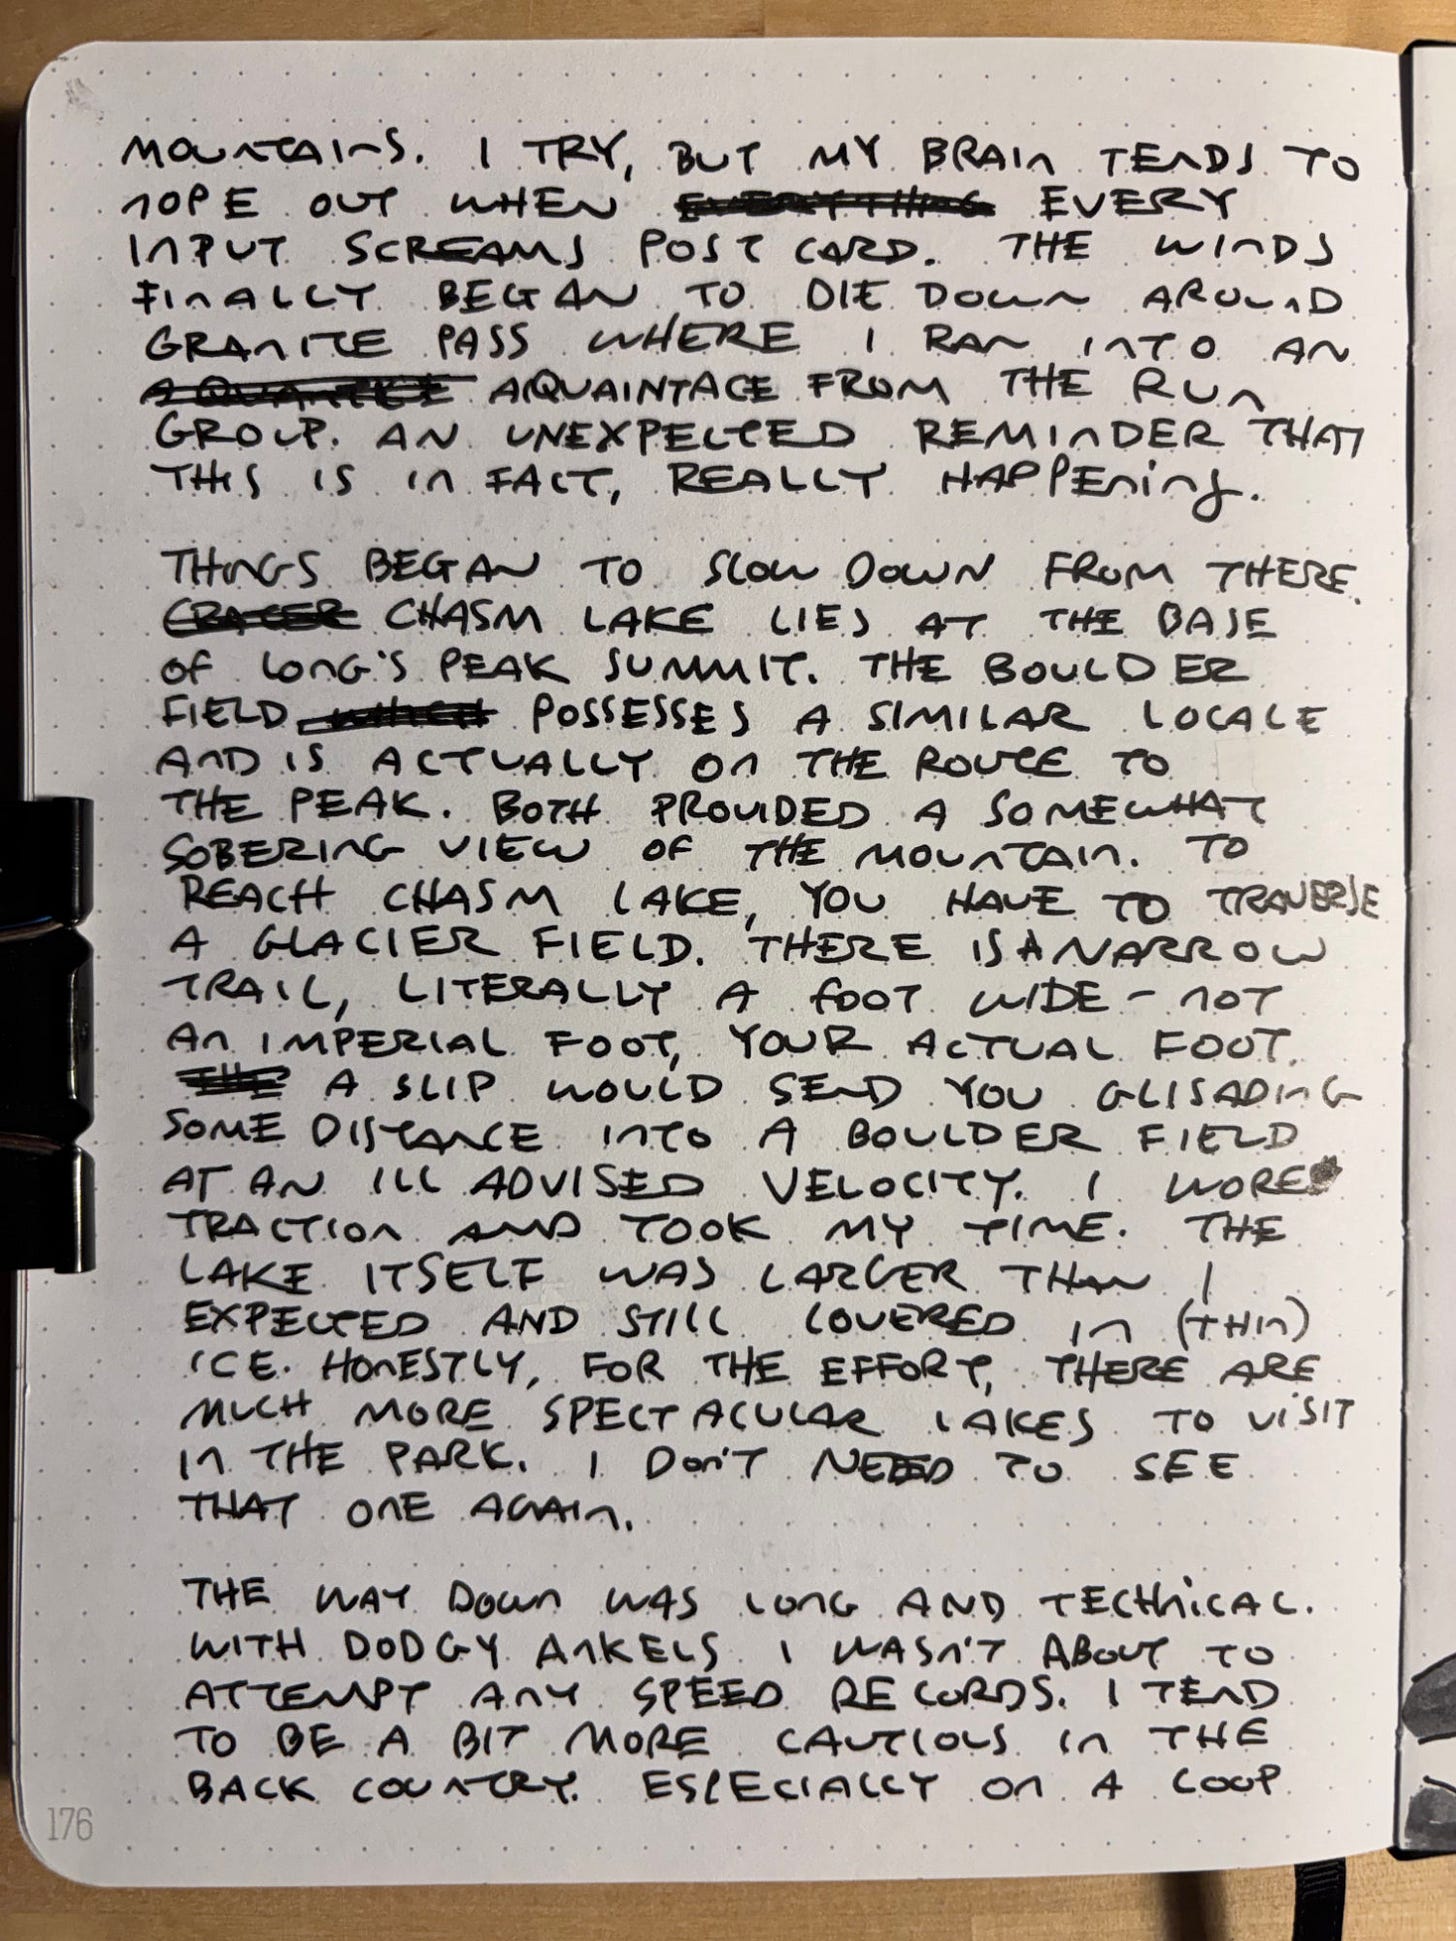 MOUNTAINS. I TRY, BUT MY BRAIN TENDS TO
NOPE OUT WHEN EVERYTHING EVERY
INPUT SCREAMS POST CARD. THE WINDS
FINALLY BEGAN TO DIE DOWN AROUND
GRANITE PASS WHERE I RAN INTO AN
AQUAINTACE FROM THE RUN
GROUP. AN UNEXPECTED REMINDER THAT
THIS IS IN FACT, REALLY HAPPENING.
THINGS BEGAN TO SLOW DOWN FROM THERE.
CHASM LAKE LIES AT THE BASE
OF LONG'S PEAK SUMMIT. THE BOULDER
FIELD WHICH POSSESSES A SIMILAR LOCALE
AND IS ACTUALLY ON THE ROUTE TO
THE PEAK. BOTH PROVIDED A SOMEWHAT
SOBERING VIEW OF THE MOUNTAIN. TO
REACH CHASM LAKE, YOU HAVE TO TRAVERSE
A GLACIER FIELD. THERE IS A NARROW
TRAIL, LITERALLY A FOOT WIDE - NOT
AN IMPERIAL FOOT, YOUR ACTUAL FOOT.
THE A SLIP WOULD SEND YOU GLISADING
SOME DISTANCE INTO A BOULDER FIELD
AT AN ILL ADVISED VELOCITY. I WORE
TRACTION AND TOOK MY TIME. THE
LAKE ITSELF WAS LARGER THAN I
EXPECTED AND STILL COVERED IN (THIN)
ICE. HONESTLY, FOR THE EFFORT, THERE ARE
MUCH MORE SPECTACULAR LAKES TO VISIT
IN THE PARK. I DON'T NEED TO SEE
THAT ONE AGAIN.
THE WAY DOWN WAS LONG AND TECHNICAL.
WITH DODGY ANKELS I WASN'T ABOUT TO
ATTEMPT ANY SPEED RECORDS. I TEND
TO BE A BIT MORE CAUTIOUS IN THE
BACK COUNTRY. ESPECIALLY ON A LOOP
176